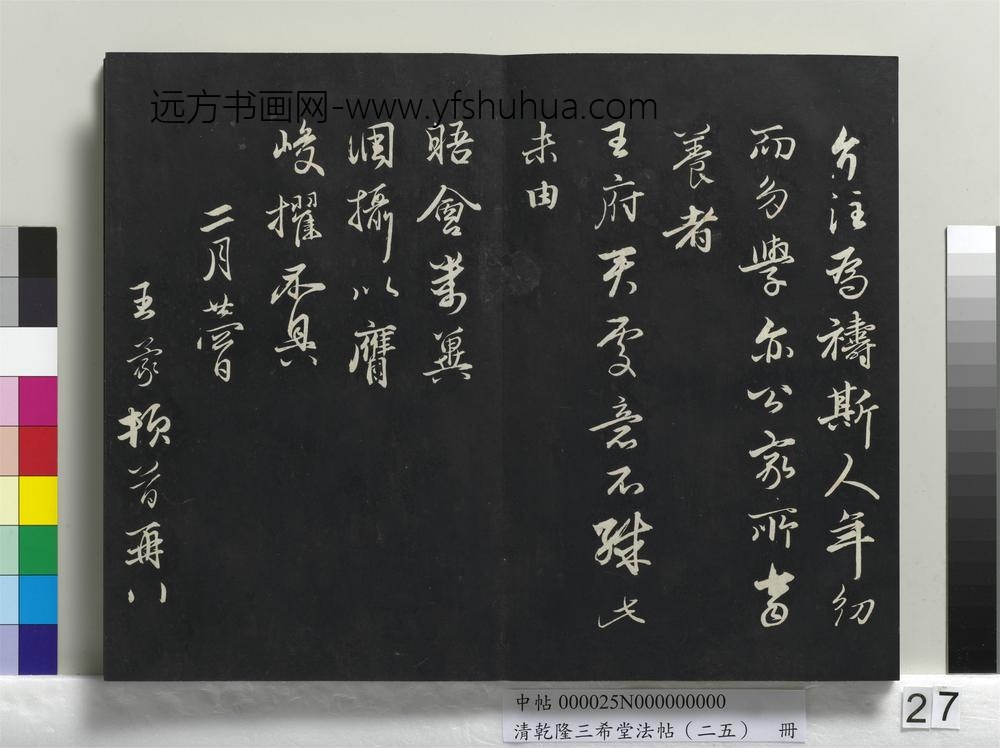 远方书画网-www.yfshuhua.com
介注為禱斯人年幼
而勿學亦公家所當
養者
王府天處意不殊此
未由
晤會萬冀
調攝以膺
峻擢不具
二月廿四日
王蒙頓首再拜
中帖 000025N000000000
清乾隆三希堂法帖（二五） 冊
27